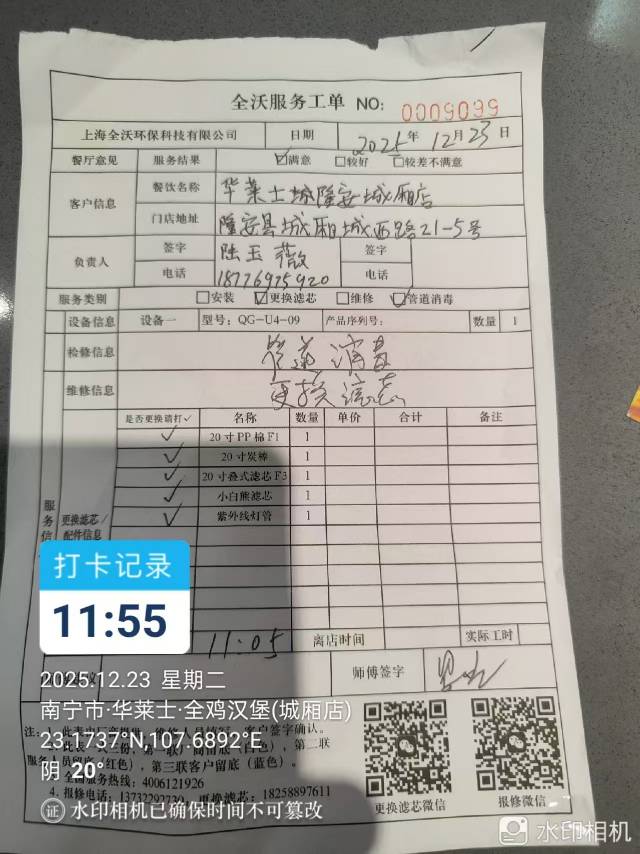 全沃服务工单 NO: 0009099
上海全沃环保科技有限公司 日期 2025年12月23日
餐厅意见 服务结果 ☑满意 □较好 □较差不满意
客户信息 餐饮名称 华莱士城隆安城厢店
门店地址 隆安县城厢城西路21-5号
负责人 签字 陆玉薇 签字
电话 18776975920 电话
服务类别 □安装 ☑更换滤芯 □维修 ☑管道消毒
设备信息 设备一 型号：QG-U4-09 产品序列号： 数量 1
检修信息 管道消毒
维修信息 更换滤芯
是否更换请打✓ 名称 数量 单价 合计 备注
✓ 20寸PP棉F1 1
✓ 20寸炭棒 1
✓ 20寸叠式滤芯F3 1
✓ 小白熊滤芯 1
✓ 紫外线灯管 1
服务信
更换滤芯/
配件信息
打卡记录
11:55
11:05 离店时间 实际工时
师傅签字
2025.12.23 星期二
南宁市·华莱士·全鸡汉堡(城厢店)
23.17379N,107.68928E
阴 20°
客户签字确认。
第三联客户留底（蓝色）。
全国服务热线：4006121926
4. 报修电话：13732292730 更换滤芯：18258897611
更换滤芯微信 报修微信
证 水印相机已确保时间不可篡改
水印相机